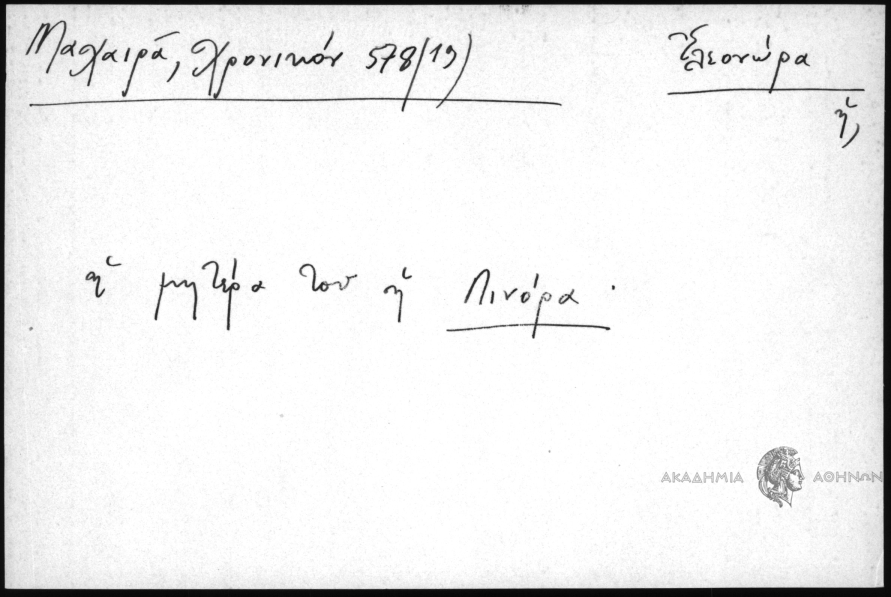 Μαχαιρᾶ, Χρονικόν 578/19) Ἐλεονώρα
ἡ,
ἡ μητέρα του ἡ Λινόρα.
ΑΚΑΔΗΜΙΑ ΑΘΗΝΩΝ